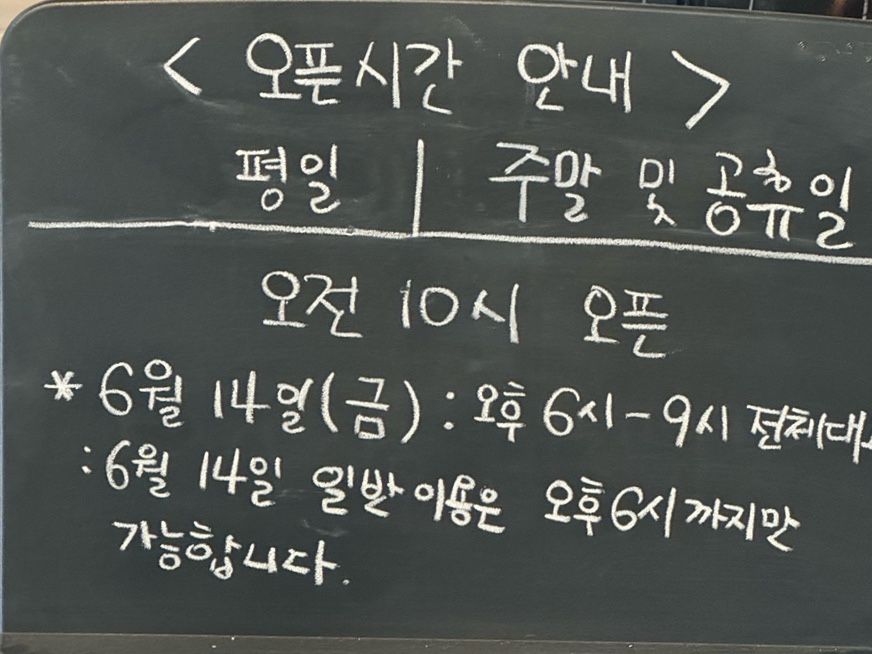 < 오픈시간 안내 >
평일 | 주말 및 공휴일
오전 10시 오픈
* 6월 14일(금) : 오후 6시-9시 전체대
: 6월 14일 일반 이용은 오후 6시까지만
가능합니다.